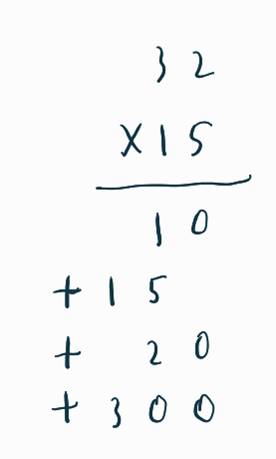 32
×15
10
+ 15
+ 20
+ 300